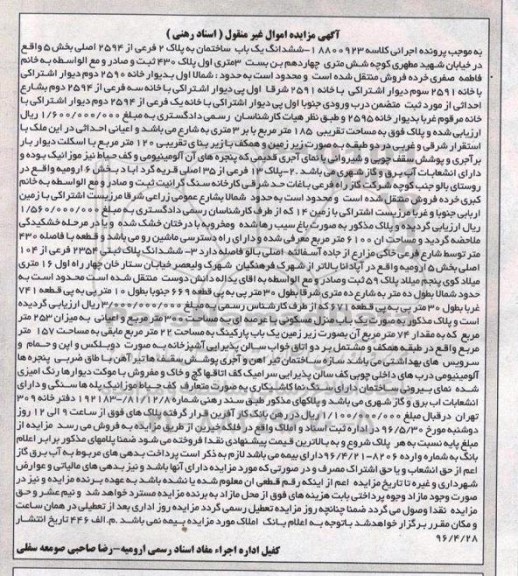 آگهی مزایده اموال غیر منقول ( اسناد رهنی )
به موجب پرونده اجرائی کلاسه ۱۸۸۰۰۹۲۳-ششدانگ یک باب ساختمان به پلاک ۲ فرعی از ۲۵۹۴ اصلی بخش ۵ واقع
در خیابان شهید مطهری کوچه شش متری چهاردهم بن بست ۳متری اول پلاک ۴۳۰ ثبت و صادر و مع الواسطه به خانم
فاطمه صفری خرده فروش منتقل شده است و محدود است به حدود : شمالا اول بدیوار خانه ۲۵۹۰ دوم دیوار اشتراکی
با خانه ۲۵۹۱ سوم دیوار اشتراکی با خانه ۲۵۹۱ شرقا اول پی دیوار اشتراکی با خانه سه فرعی از ۲۵۹۴ دوم بشارع
احداثی از مورد ثبت متضمن درب ورودی جنوبا اول پی دیوار اشتراکی با خانه یک فرعی از ۲۵۹۴ دوم دیوار اشتراکی با
خانه مرقوم غربا بدیوار خانه ۲۵۹۵ و طبق نظر هیات کارشناسان رسمی دادگستری به مبلغ ۱/۶۰۰/۰۰۰/۰۰۰ ریال
ارزیابی شده و پلاک فوق به مساحت تقریبی ۱۸۵ متر مربع با بر ۳ متری به شارع می باشد و اعیانی احداثی در این ملک با
استقرار شرقی و غربی در دو طبقه به صورت زیر زمین و همکف با زیر بنای تقریبی ۱۲۰ متر مربع با اسکلت دیوار بار
بر آجری و پوشش سقف چوبی و شیروانی با نمای آجری قدیمی که پنجره های آن آلومینیومی و کف حیاط نیز موزائیک بوده و
دارای انشعابات آب برق و گاز شهری می باشد .۲-پلاک ۱۳ فرعی از ۳۵ اصلی قریه گرد اباد بخش ۶ ارومیه واقع در
روستای بالو جنب کوچه شرکت گاز راه فرعی باغات حد شرقی کارخانه سنگ گرانیت ثبت و صادر و مع الواسطه به خانم
کبری خرده فروش منتقل شده است و محدود است به حدود شمالا بشارع عمومی زراعی شرقا مرزیست اشتراکی با زمین
اربابی جنوبا و غربا مرزیست اشتراکی با زمین ۱۴ که از طرف کارشناسان رسمی دادگستری به مبلغ ۱/۵۶۰/۰۰۰/۰۰۰
ریال ارزیابی گردیده و پلاک مذکور به صورت باغ سیب رها شده ومخروبه با درختان خشک شده و یا در مرحله خشکیدگی
ملاحضه گردید و مساحت آن ۶۱۰۰ متر مربع معرفی شده و دارای راه دسترسی ماشین رو می باشد و قطعه با فاصله ۴۳۰
متر توسط شارع فرعی خاکی مزارع از جاده آسفالته اصلی بالو فاصله دارد ۳- ششدانگ پلاک ثبتی ۲۳۵۴ فرعی از ۱۰۴
اصلی بخش ۵ ارومیه واقع در آپادانا بالاتر از شهرک فرهنگیان شهرک ولیعصر خیابان ستار خان چهار راه اول ۱۶ متری
میلاد کوی پنجم میلاد پلاک ۵۹ ثبت و صادر و مع الواسطه به اقای یداله دانش دوست منتقل شده است محدود است به
حدود شمالا بطول ده متر به شارع ده متری شرقا بطول ۳۰ متر پی به پی قطعه ۶۶۹ جنوبا بطول ۱۰ متر پی به پی قطعه ۷۴۱
غربا بطول ۳۰ متر پی به پی قطعه ۶۷۱ که از طرف کارشناس رسمی به مبلغ ۳/۰۰۰/۰۰۰/۰۰۰ ریال ارزیابی گردیده
است و پلاک مذکور به صورت یک باب منزل مسکونی با عرصه ای به مساحت ۳۰۰ متر مربع و اعیانی به میزان ۲۵۳ متر
مربع که به مقدار ۷۴ متر مربع آن بصورت زیر زمین یک باب پارکینگ به مساحت ۲۲ متر مربع مابقی به مساحت ۱۵۷ متر
مربع واقع در طبقه همکف و مشتمل بر دو اتاق خواب سالن پذیرایی آشپزخانه به صورت دوبلکس و اپن و حمام و
سرویس های بهداشتی می باشد سازه ساختمان تیر آهن و آجری پوشش سقف ها تیر آهن با طاق ضربی پنجره ها
آلومینیومی درب های داخلی چوبی کف سالن پذیرایی سرامیک کف اتاقها گچ و خاک و مفروش با موکت دیوارها رنگ آمیزی
شده نمای بیرونی ساختمان دارای سنگ نما کاشیکاری به صورت متعارف کف حیاط موزائیک پله ها سنگی و دارای
انشعابات آب برق و گاز شهری می باشد و پلاکهای مذکور طبق سند رهنی شماره ۱۹۲۱۸۳-۸۱/۱۲/۲۸ دفتر خانه ۳۰۹
تهران درقبال مبلغ ۱/۱۰۰/۰۰۰/۰۰۰ ریال در رهن بانک کار آفرین قرار گرفته پلاک های فوق از ساعت ۹ الی ۱۲ روز
دوشنبه مورخ ۹۶/۵/۳۰ در اداره ثبت اسناد و املاک واقع در فلکه خیبرین از طریق مزایده به فروش می رسد مزایده از
مبلغ پایه نسبت به هر پلاک شروع و به بالاترین قیمت پیشنهادی نقدا فروخته می شود ضمنا پلامهای مذکور برابر اعلام
بانک به شماره وارده ۸۲۰۶-۹۶/۴/۲۱دارای بیمه می باشد لازم به ذکر است پرداخت بدهی های مربوط به آب برق گاز
اعم از حق انشعاب و یا حق اشتراک مصرف و در صورتی که مورد مزایده دارای آنها باشد و نیز بدهی های مالیاتی و عوارض
شهرداری و غیره تا تاریخ مزایده اعم از اینکه رقم قطعی ان معلوم شده یا نشده باشد به عهده برنده مزایده و نیز در
صورت وجود مازاد وجوه پرداختی بابت هزینه های فوق از محل مازاد به برنده مزایده مسترد خواهد شد و نیم عشر و حق
مزایده نقدا وصول می گردد ضمنا چنانچه روز مزایده تعطیل رسمی گردد مزایده روز اداری بعد از تعطیلی در همان ساعت
و مکان مقرر برگزار خواهدشد باتوجه به اعلام بانک املاک مورد مزایده بیمه نمی باشد .م.الف ۴۴۶ تاریخ انتشار
۹۶/۴/۲۸
کفیل اداره اجراء مفاد اسناد رسمی ارومیه-رضا صاحبی صومعه سفلی